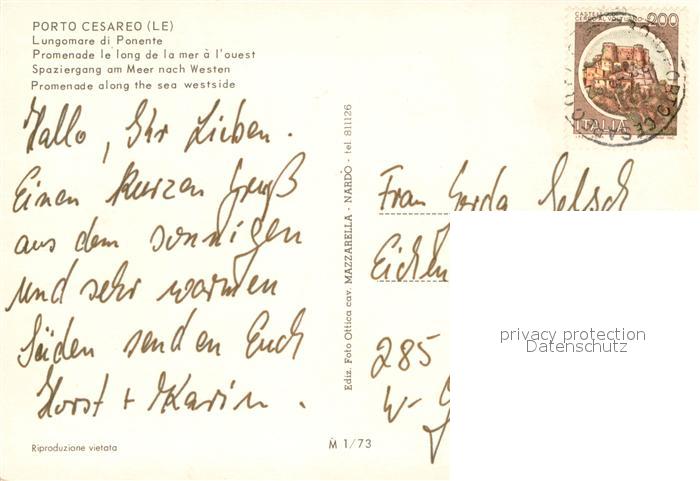 PORTO CESAREO (LE)
Lungomare di Ponente
Promenade le long de la mer à l'ouest
Spaziergang am Meer nach Westen
Promenade along the sea westside
Hallo, Ihr Lieben.
Einen kurzen Gruß
aus dem sonnigen
und sehr warmen
Süden senden Euch
Horst + Karin.
Riproduzione vietata
Ediz. Foto Ottica cav. MAZZARELLA - NARDÒ - tel. 811126
M 1/73
200
ITALIA
PORTO CESAREO
Frau Gerda
Eichen
285
W-
privacy protection
Datenschutz